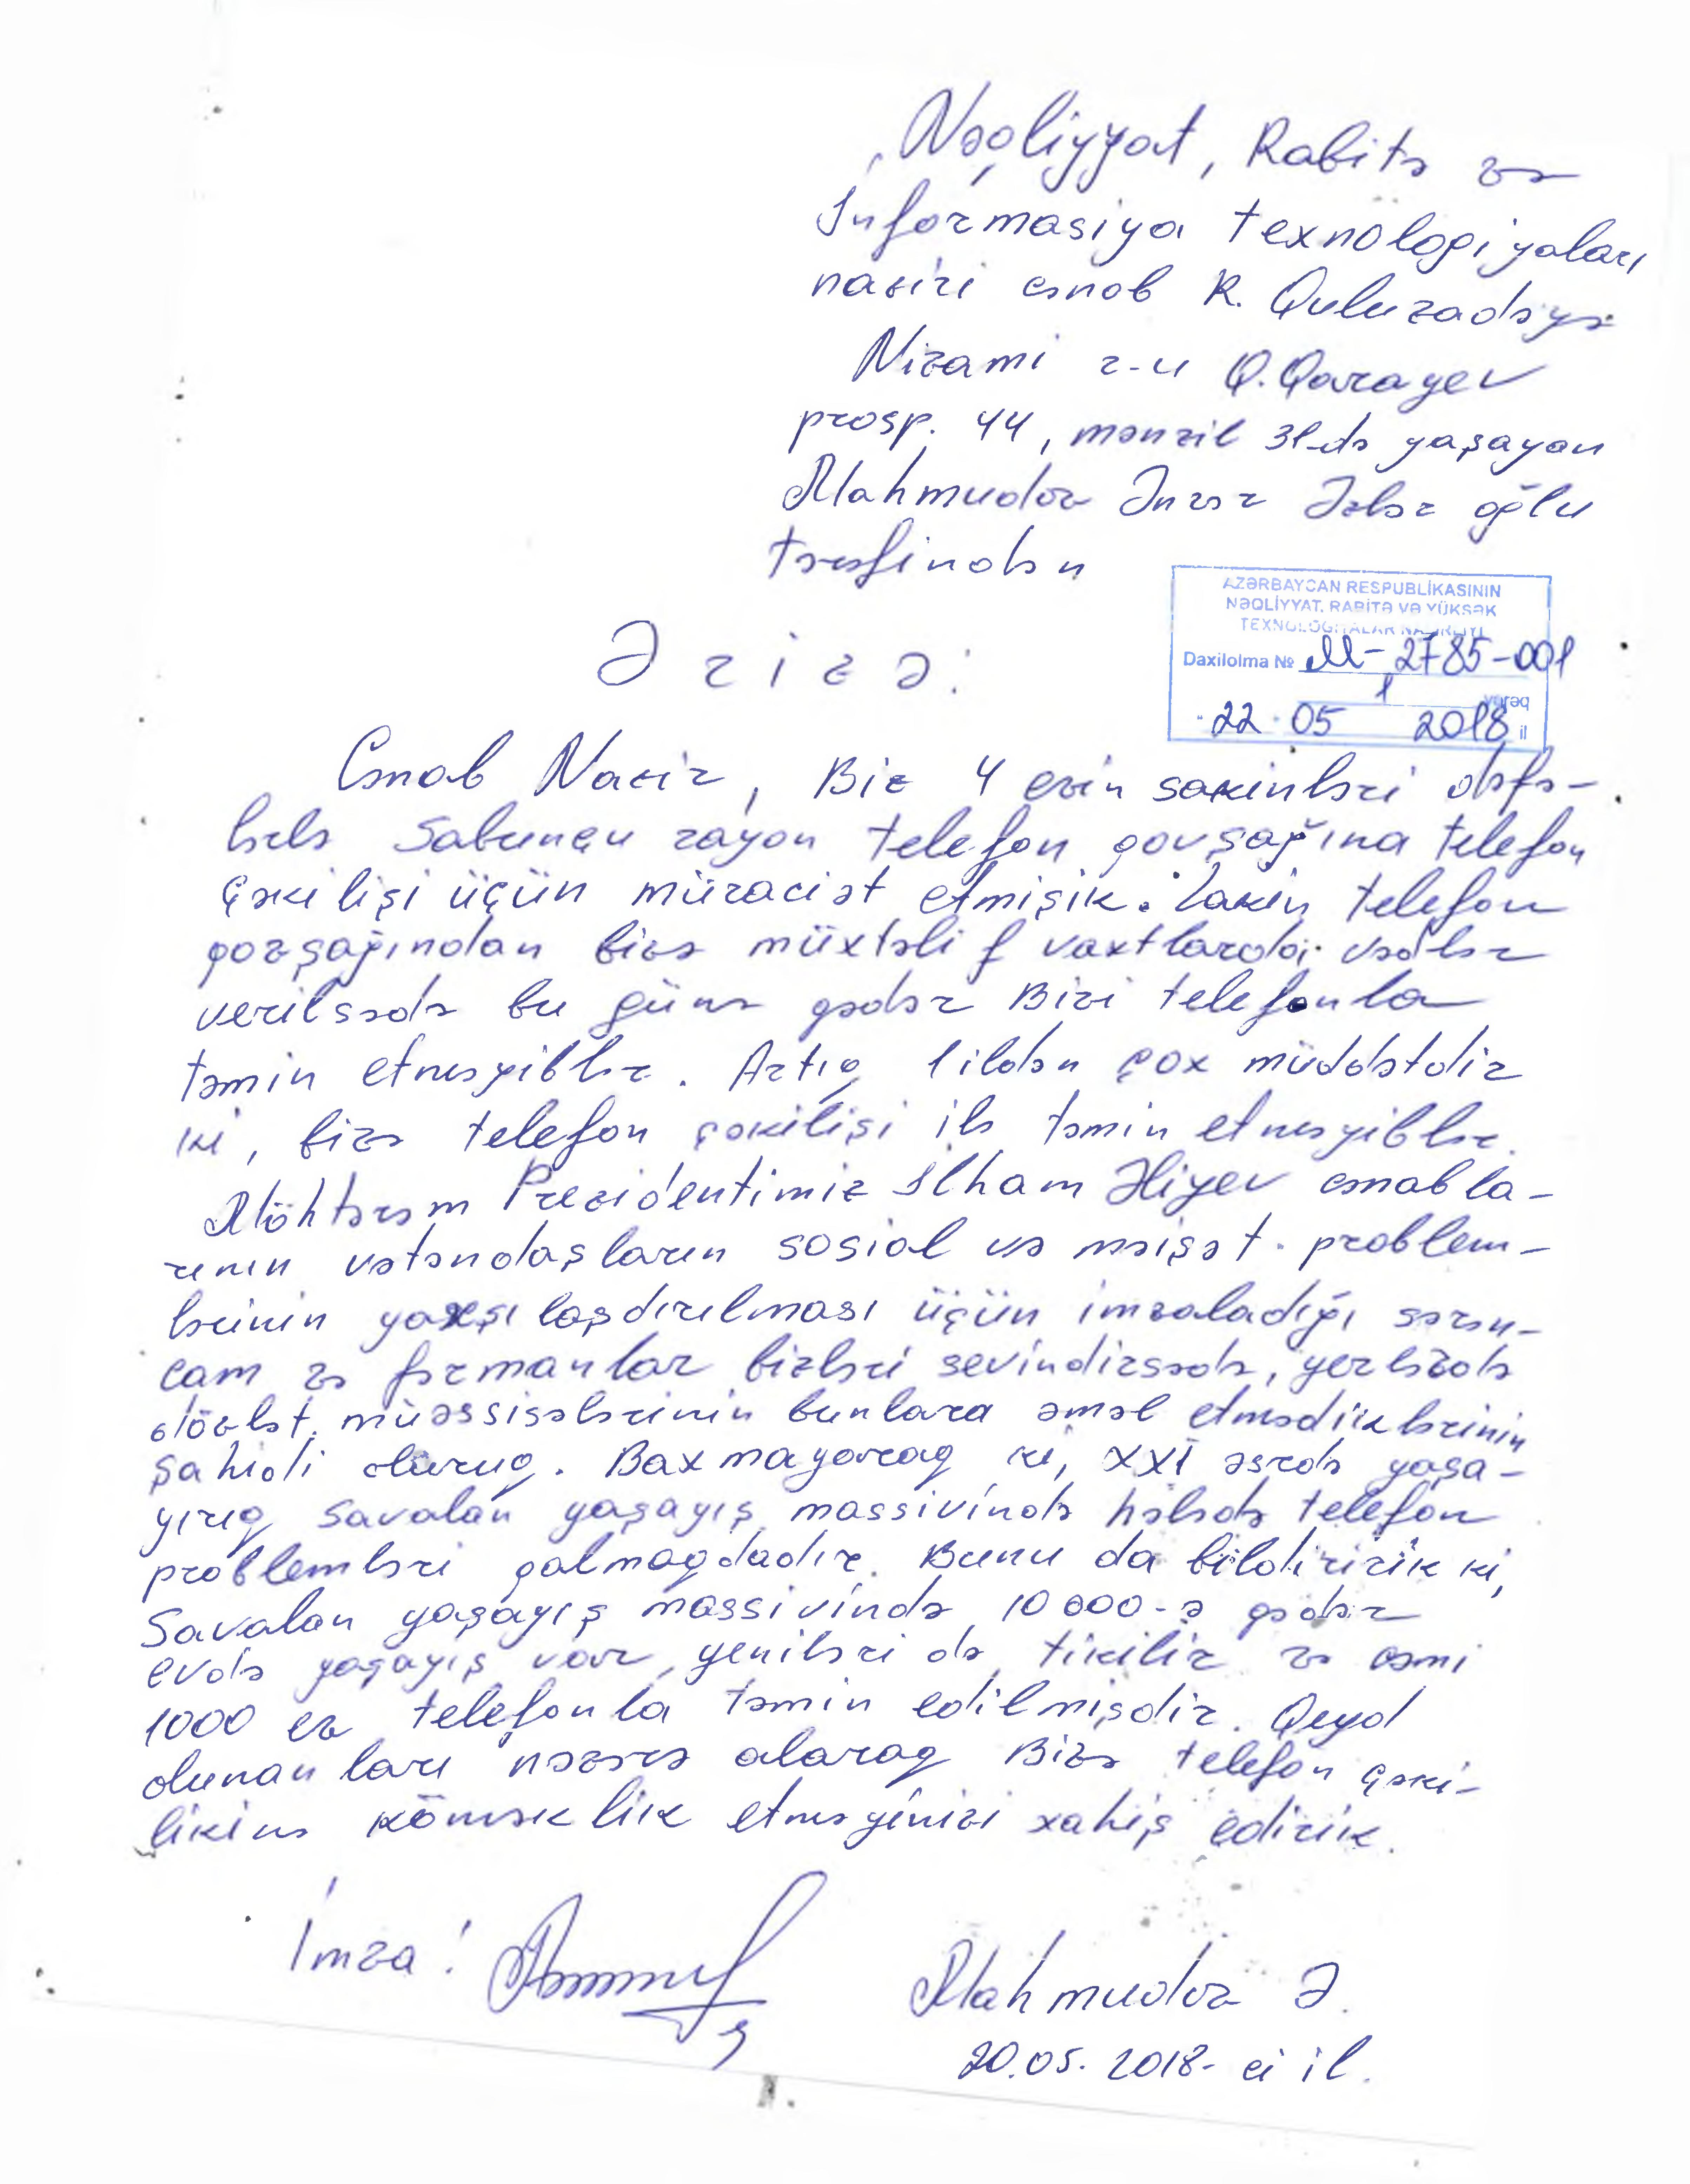 Nəqliyyat, Rabitə və
İnformasiya texnologiyaları
naziri cənab R. Quluzadəyə
Nizami r-u Q.Qarayev
prosp. 44, mənzil 31-də yaşayan
Mahmudov Ənvər Əkbər oğlu
tərəfindən
AZƏRBAYCAN RESPUBLİKASININ
NƏQLİYYAT, RABİTƏ VƏ YÜKSƏK
TEXNOLOGİYALAR NAZİRLİYİ
Daxilolma № M-2785-001
1 vərəq
22 05 2018 il
Ərizə:
Cənab Nazir, Biz 4 evin sakinləri dəfə-
lərlə Sabunçu rayon telefon qovşağına telefon
çəkilişi üçün müraciət etmişik. Lakin telefon
qovşağından bizə müxtəlif vaxtlarda vədlər
verilsədə bu günə qədər Bizi telefonla
təmin etməyiblər. Artıq 1 ildən çox müddətdir
ki, bizə telefon çəkilişi ilə təmin etməyiblər.
Möhtərəm Prezidentimiz İlham Əliyev cənabla-
rının vətəndaşların sosial və məişət problem-
lərinin yaxşılaşdırılması üçün imzaladığı sərən-
cam və fərmanlar bizləri sevindirsədə, yerlərdə
dövlət müəssisələrinin bunlara əməl etmədiklərinin
şahidi oluruq. Baxmayaraq ki, XXI əsrdə yaşa-
yırıq Savalan yaşayış massivində hələdə telefon
problemləri qalmaqdadır. Bunu da bildiririk ki,
Savalan yaşayış massivində 10 000-ə qədər
evdə yaşayış var, yeniləri də tikilir və cəmi
1000 ev telefonla təmin edilmişdir. Qeyd
olunanları nəzərə alaraq Bizə telefon çəki-
likinə köməklik etməyinizi xahiş edirik.
İmza:
Mahmudov Ə.
20.05.2018-ci il.